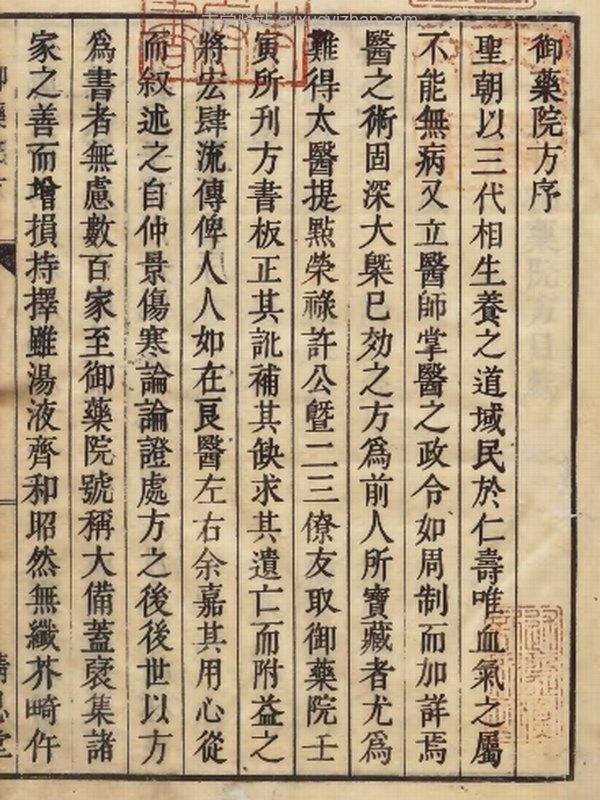 御藥院方序
聖朝以三代相生養之道域民於仁壽唯血氣之屬
不能無病又立醫師掌醫之政令如周制而加詳焉
醫之術固深大槩已効之方爲前人所寶藏者尤爲
難得太醫提㸃榮祿許公曁二三僚友取御藥院壬
寅所刊方書板正其訛補其缺求其遺亡而附益之
將宏肆流傳俾人人如在良醫左右余嘉其用心從
而叙述之自仲景傷寒論論證處方之後後世以方
爲書者無慮數百家至御藥院號稱大備蓋裒集諸
家之善而增損持擇雖湯液齊和昭然無纖芥畸仵